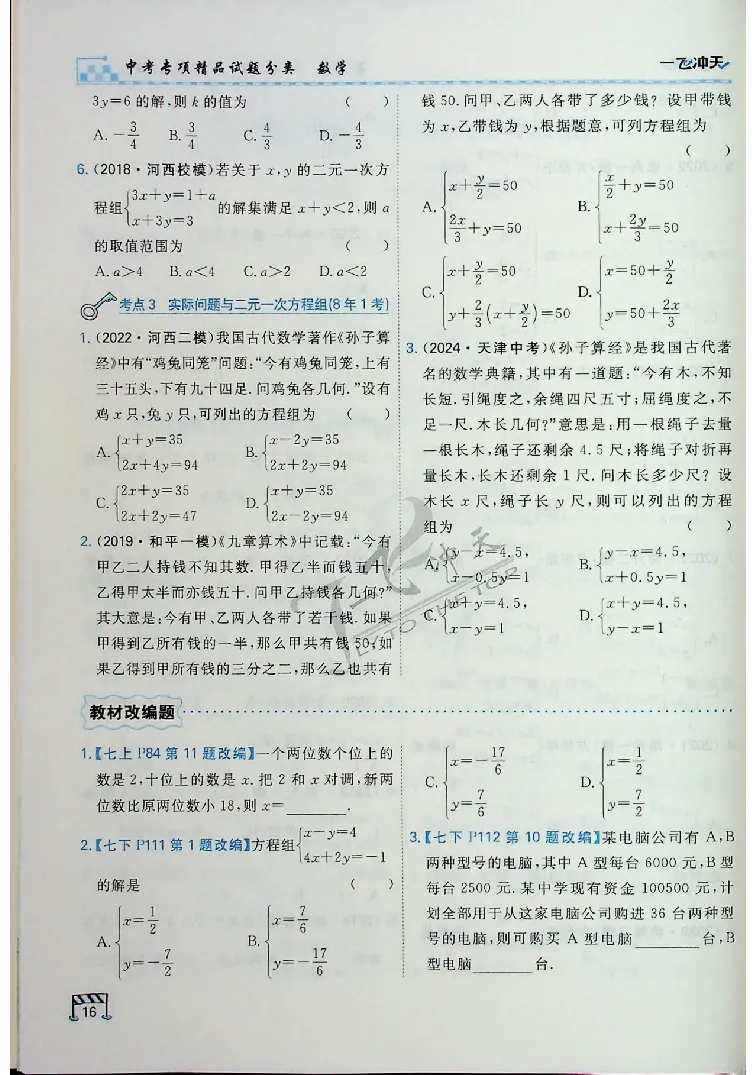 中考专项精品试题分类 数学
一飞冲天
3y=6 的解,则 k 的值为 ( )
A. -3/4 B. 3/4 C. 4/3 D. -4/3
6. (2018·河西校模)若关于 x,y 的二元一次方
程组{3x+y=1+a
x+3y=3 的解集满足 x+y<2,则 a
的取值范围为 ( )
A. a>4 B. a<4 C. a>2 D. a<2
考点 3 实际问题与二元一次方程组(8 年 1 考)
1. (2022·河西二模)我国古代数学著作《孙子算
经》中有“鸡兔同笼”问题:“今有鸡兔同笼,上有
三十五头,下有九十四足.问鸡兔各几何.”设有
鸡 x 只,兔 y 只,可列出的方程组为 ( )
A. {x+y=35
2x+4y=94
B. {x-2y=35
2x+2y=94
C. {2x+y=35
2x+2y=47
D. {x+y=35
2x-2y=94
2. (2019·和平一模)《九章算术》中记载:“今有
甲乙二人持钱不知其数.甲得乙半而钱五十,
乙得甲太半而亦钱五十.问甲乙持钱各几何?”
其大意是:今有甲、乙两人各带了若干钱.如果
甲得到乙所有钱的一半,那么甲共有钱 50;如
果乙得到甲所有钱的三分之二,那么乙也共有
钱 50.问甲、乙两人各带了多少钱? 设甲带钱
为 x,乙带钱为 y,根据题意,可列方程组为
( )
A. {x+y/2=50
2x/3+y=50
B. {x/2+y=50
x+2y/3=50
C. {x+y/2=50
y+2/3(x+y/2)=50
D. {x=50+y/2
y=50+2x/3
3. (2024·天津中考)《孙子算经》是我国古代著
名的数学典籍,其中有一道题:“今有木,不知
长短.引绳度之,余绳四尺五寸;屈绳度之,不
足一尺.木长几何?”意思是:用一根绳子去量
一根长木,绳子还剩余 4.5 尺;将绳子对折再
量长木,长木还剩余 1 尺.问木长多少尺? 设
木长 x 尺,绳子长 y 尺,则可以列出的方程
组为 ( )
A. {y-x=4.5,
x-0.5y=1
B. {y-x=4.5,
x+0.5y=1
C. {x+y=4.5,
x-y=1
D. {x+y=4.5,
y-x=1
教材改编题
1.【七上 P84 第 11 题改编】一个两位数个位上的
数是 2,十位上的数是 x.把 2 和 x 对调,新两
位数比原两位数小 18,则 x=______.
2.【七下 P111 第 1 题改编】方程组{x-y=4
4x+2y=-1
的解是 ( )
A. {x=1/2
y=-7/2
B. {x=7/6
y=-17/6
C. {x=-17/6
y=7/6
D. {x=1/2
y=7/2
3.【七下 P112 第 10 题改编】某电脑公司有 A,B
两种型号的电脑,其中 A 型每台 6000 元,B 型
每台 2500 元.某中学现有资金 100500 元,计
划全部用于从这家电脑公司购进 36 台两种型
号的电脑,则可购买 A 型电脑______台,B
型电脑______台.
16